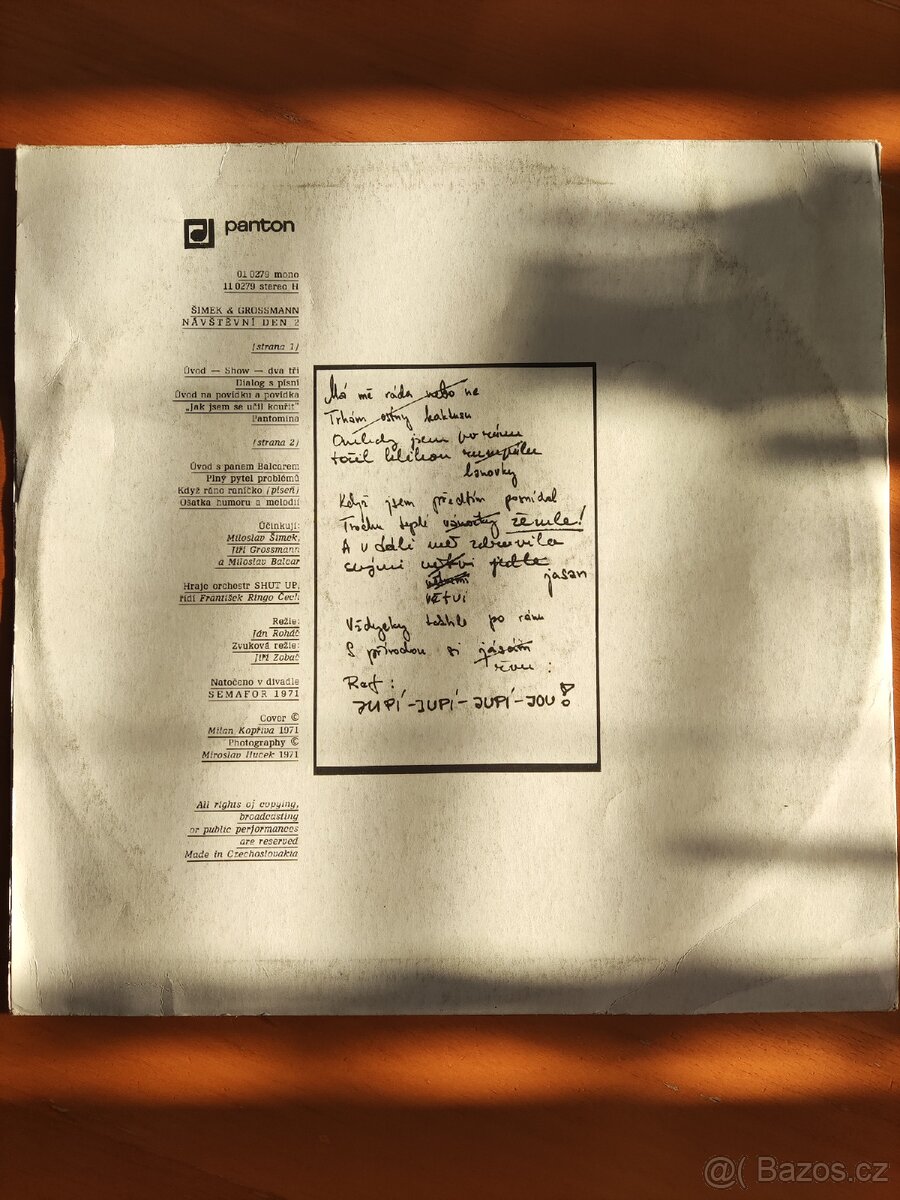 panton
01 0279 mono
11 0279 stereo H
ŠIMEK & GROSSMANN
NÁVŠTĚVNÍ DEN 2
(strana 1)
Úvod — Show — dva tři
Dialog s písní
Úvod na povídku a povídka
„Jak jsem se učil kouřit"
Pantomima
(strana 2)
Úvod s panem Balcarem
Plný pytel problémů
Když ráno raníčko (píseň)
Ošatka humoru a melodií
Účinkují:
Miloslav Šimek,
Jiří Grossmann
a Miloslav Balcar
Hraje orchestr SHUT UP,
řídí František Ringo Čech
Režie:
Ján Roháč
Zvuková režie:
Jiří Zobač
Natočeno v divadle
SEMAFOR 1971
Cover ©
Milan Kopřiva 1971
Photography ©
Miroslav Hucek 1971
All rights of copying,
broadcasting
or public performances
are reserved
Made in Czechoslovakia
Má mě ráda nebo ne
Trhám ostny kaktusu
jsem po ránu
točil klikou rumpálu
lanovky
Když jsem předtím posnídal
Trochu teplé vánočky žemle!
A v dáli mě zdravila
svými jedle
jasan
větví
Vždycky takhle po ránu
S přírodou si
řvu:
Ref:
JUPÍ-JUPÍ-JUPÍ-JOU!
@( Bazos.cz